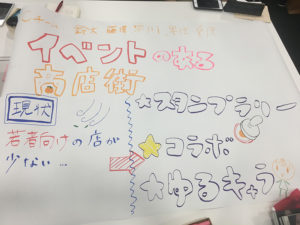 イベントのある
商店街
現状
若者向けの店が
少ない…
☆スタンプラリー
☆コラボ
☆ゆるキャラ